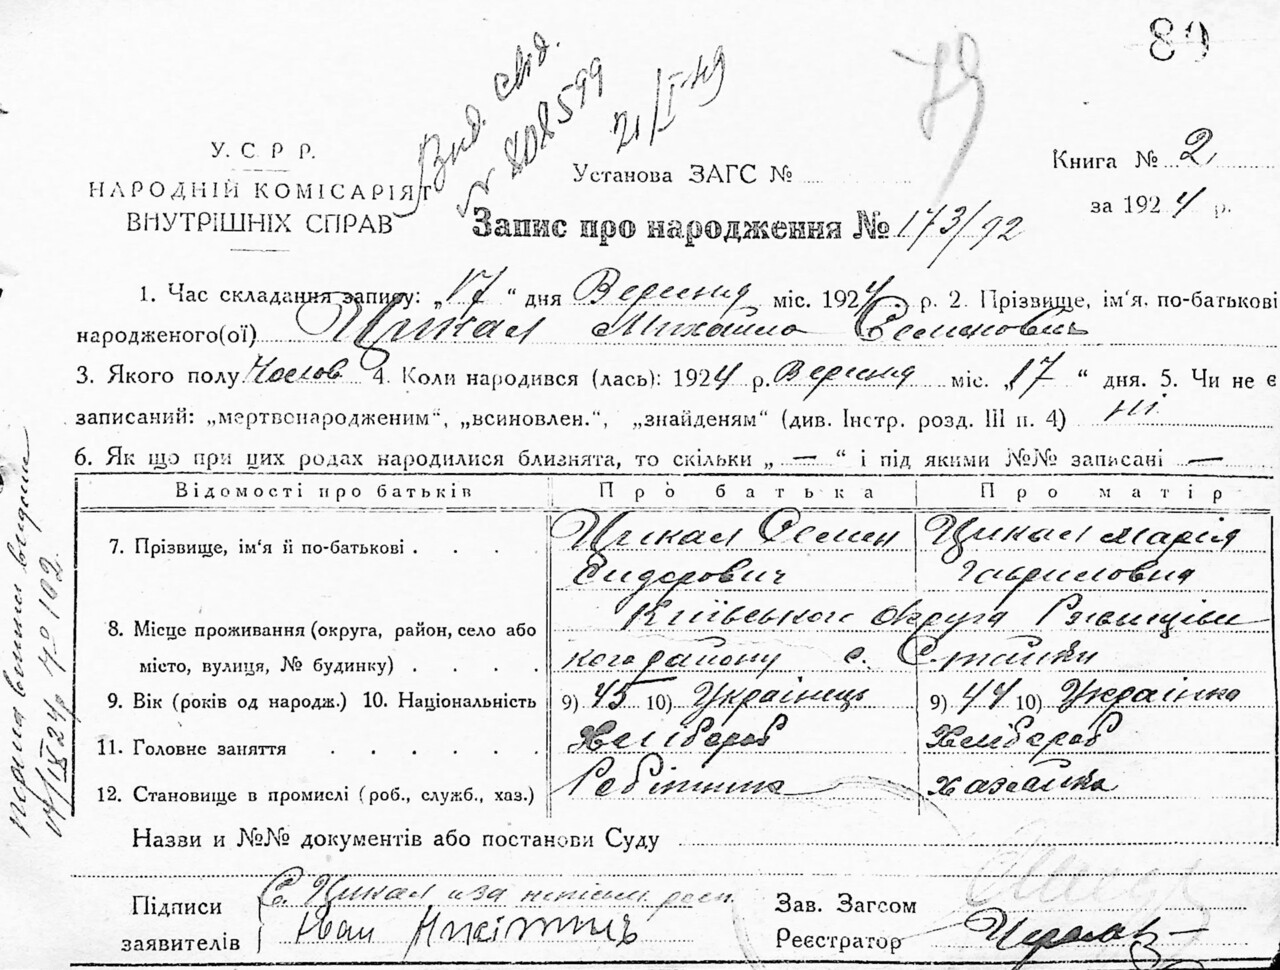 80
79
Вид. свід.
№ 808599
21/I 49
У. С. Р. Р.
НАРОДНІЙ КОМІСАРІЯТ
ВНУТРІШНІХ СПРАВ
Установа ЗАГС №
Книга № 2,
за 1924 р.
Запис про народження № 173/92
1. Час складання запису: „17“ дня Вересня міс. 1924 р. 2. Прізвище, ім'я. по-батькові
народженого(ої) Цикал Михайло Семенович
3. Якого полу Чолов 4. Коли народився (лась): 1924 р. Вересня міс. „17“ дня. 5. Чи не є
записаний: „мертвонародженим“, „всиновлен.“, „знайденям“ (див. Інстр. розд. III п. 4) ні
6. Як що при цих родах народилися близнята, то скільки „ — “ і під якими №№ записані —
Відомості про батьків Про батька Про матір
7. Прізвище, ім'я й по-батькові . . . . Цикал Семен Цикал Марія
Сидорович Гавриловна
Київського округа Ржищівсь
8. Місце проживання (округа, район, село або
місто, вулиця, № будинку) . . . . кого району с. Стайки
9. Вік (років од народж.) 10. Національність 9) 45 10) Українець 9) 44 10) Українка
11. Головне заняття . . . . . . Хлібороб Хлібороб
12. Становище в промислі (роб., служб., хаз.) Робітник Хазяйка
Назви и №№ документів або постанови Суду
Підписи
заявителів
С. Цикал и за
Іван Никітинъ
Зав. Загсом
Реєстратор
виписи видани
/IX 24 р. № 102.